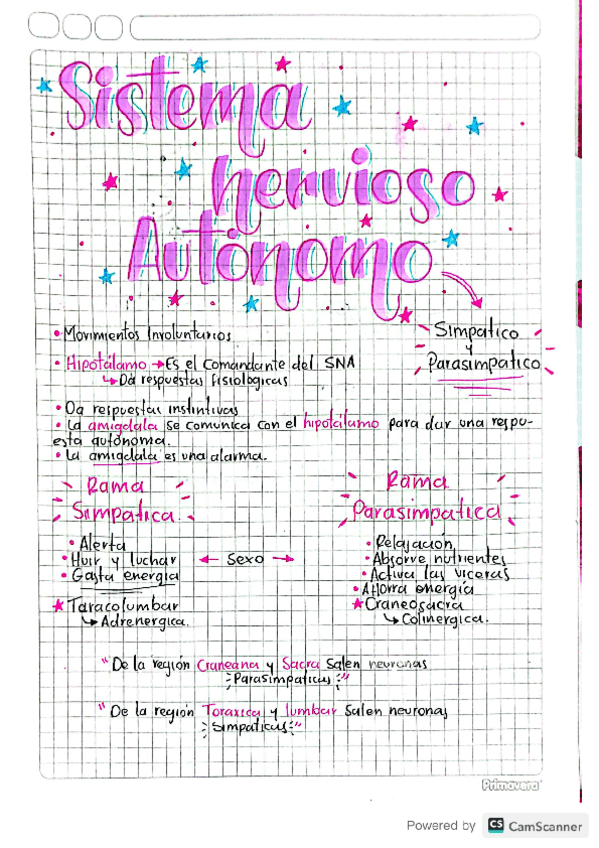 Sistema
nervioso
Autónomo
Simpatico
y
Parasimpatico
• Movimientos Involuntarios
• Hipotálamo → Es el comandante del SNA
↳ Da respuestas fisiologicas
• Da respuestas instintivas
• La amigdala se comunica con el hipotálamo para dar una respu-
esta autónoma.
• La amigdala es una alarma.
Rama
Simpatica
• Alerta
• Huir y luchar
• Gasta energia
★ Taracolumbar
↳ Adrenergica.
← Sexo →
Rama
Parasimpatica
• Relajación
• Absorve nutrientes
• Activa las viceras
• Ahorra energía
★ Craneosacra
↳ Colinergica.
"De la región Craneana y Sacra Salen neuronas
Parasimpaticas"
"De la región Toraxica y lumbar Salen neuronas
Simpaticas"
Primavera
Powered by CS CamScanner